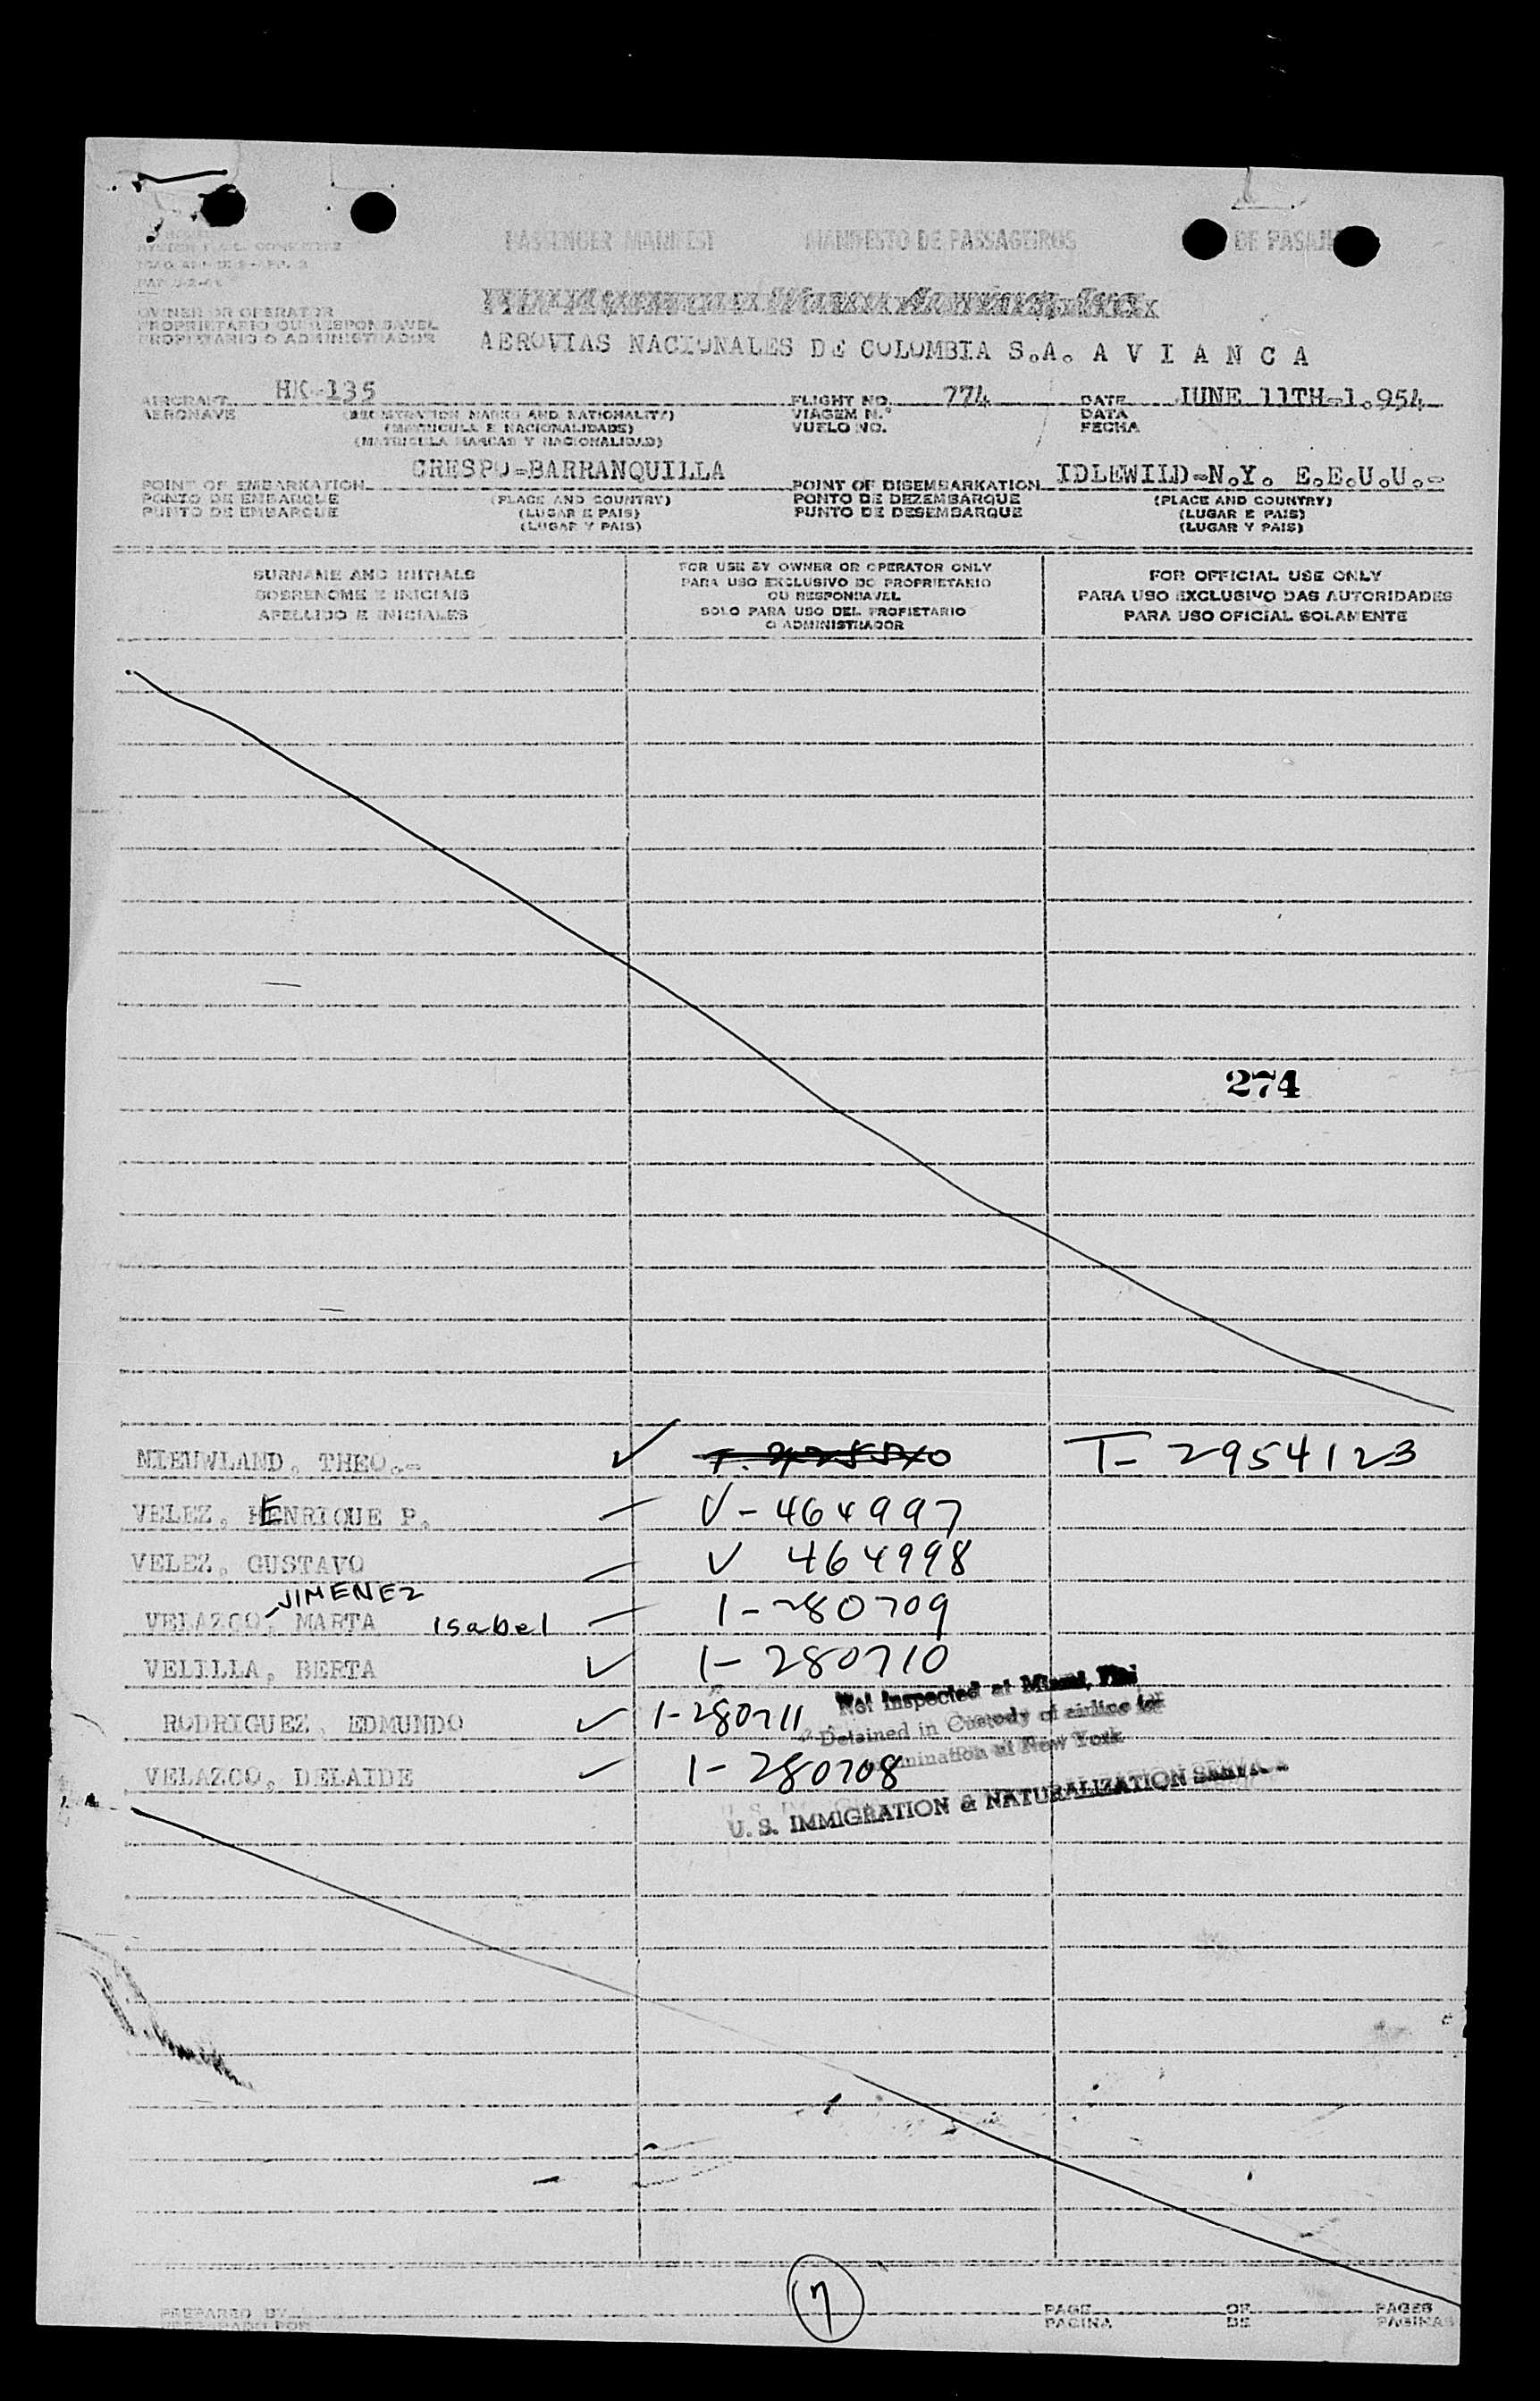 PASSENGER MANIFEST MANIFESTO DE PASSAGEIROS DE PASAJE
OWNER OR OPERATOR
PROPRIETARIO OU RESPONSAVEL
PROPIETARIO O ADMINISTRADOR
AEROVIAS NACIONALES DE COLOMBIA S.A. A V I A N C A
AIRCRAFT HK-135 FLIGHT NO. 774 DATE JUNE 11TH-1.954
AERONAVE (REGISTRATION MARKS AND NATIONALITY) VIAGEM N.º DATA
(MATRICULA E NACIONALIDADE) VUELO NO. FECHA
(MATRICULA MARCAS Y NACIONALIDAD)
POINT OF EMBARKATION CRESPO-BARRANQUILLA POINT OF DISEMBARKATION IDLEWILD-N.Y. E.E.U.U.-
PONTO DE EMBARQUE (PLACE AND COUNTRY) PONTO DE DEZEMBARQUE (PLACE AND COUNTRY)
PUNTO DE EMBARQUE (LUGAR E PAIS) PUNTO DE DESEMBARQUE (LUGAR E PAIS)
(LUGAR Y PAIS) (LUGAR Y PAIS)
SURNAME AND INITIALS FOR USE BY OWNER OR OPERATOR ONLY FOR OFFICIAL USE ONLY
SOBRENOME E INICIAIS PARA USO EXCLUSIVO DO PROPRIETARIO PARA USO EXCLUSIVO DAS AUTORIDADES
OU RESPONSAVEL
APELLIDO E INICIALES SOLO PARA USO DEL PROFIETARIO PARA USO OFICIAL SOLAMENTE
O ADMINISTRADOR
274
NIEUWLAND, THEO.- T- 2954123
VELEZ, ENRIQUE P. V-464997
VELEZ, GUSTAVO V 464998
JIMENEZ
VELAZCO, MARTA Isabel 1-280709
VELILLA, BERTA 1-280710
Not Inspected at Miami, Fla
RODRIGUEZ, EDMUNDO 1-280711
Detained in Custody of airline for
VELAZCO, DELAIDE 1-280708
at New York
U. S. IMMIGRATION & NATURALIZATION
7
PREPARED BY PAGE OF PAGES
PAGINA DE PAGINAS